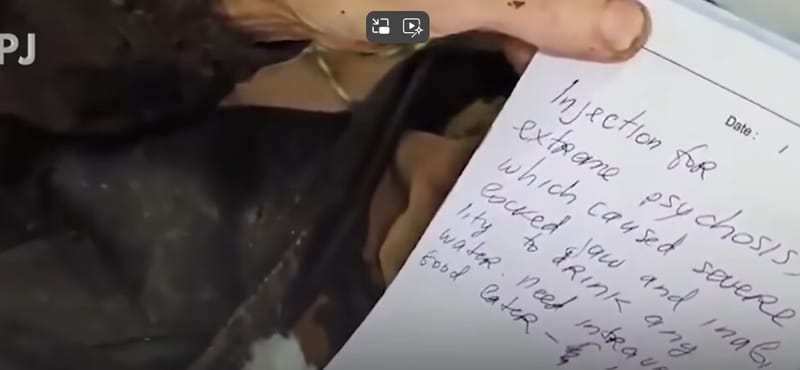 PJ
Date: 1
Injection for
extreme psychosis,
which caused severe
locked jaw and inabi
lity to drink any
water. need intrave
food later –